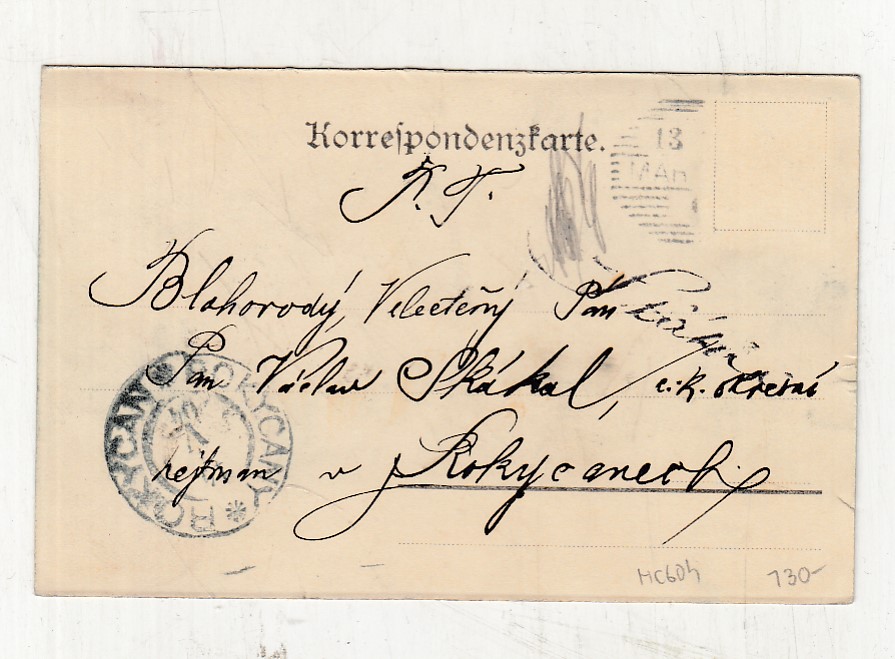 Korrespondenzkarte.
13
MAR
P. T.
Blahorodý, Velectěný Pán
Pan Václav Skákal, c.k. okresní
hejtman v Rokycanech.
ROKYCANY * ROKYCAN *
MC604 130-